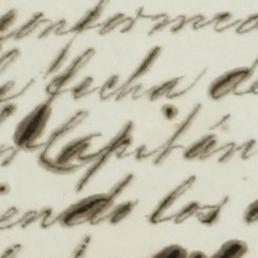 conforme
fecha de
Capitán
endo los